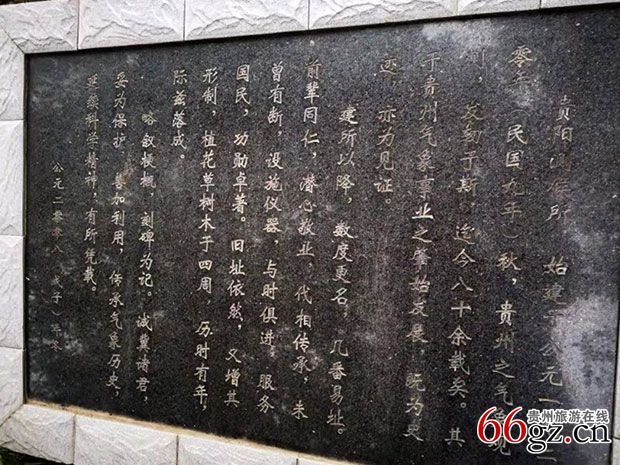 贵阳测候所 始建于公元一九二
零年(民国九年)秋,贵州之气象观
测,发轫于斯,迄今八十余载矣。其
于贵州气象事业之肇始发展,既为史
迹,亦为见证。
建所以降,数度更名,几番易址。
前辈同仁,潜心敬业,代相传承,未
曾有断,设施仪器,与时俱进。服务
国民,功勋卓著。旧址依然,又增其
形制,植花草树木于四周,历时有年,
际兹落成。
略叙梗概,刻碑为记。诚冀诸君,
妥为保护,善加利用,传承气象历史,
延续科学精神,有所凭载。
公元二零零八(戊子)年冬
贵州旅游在线
66gz.cn